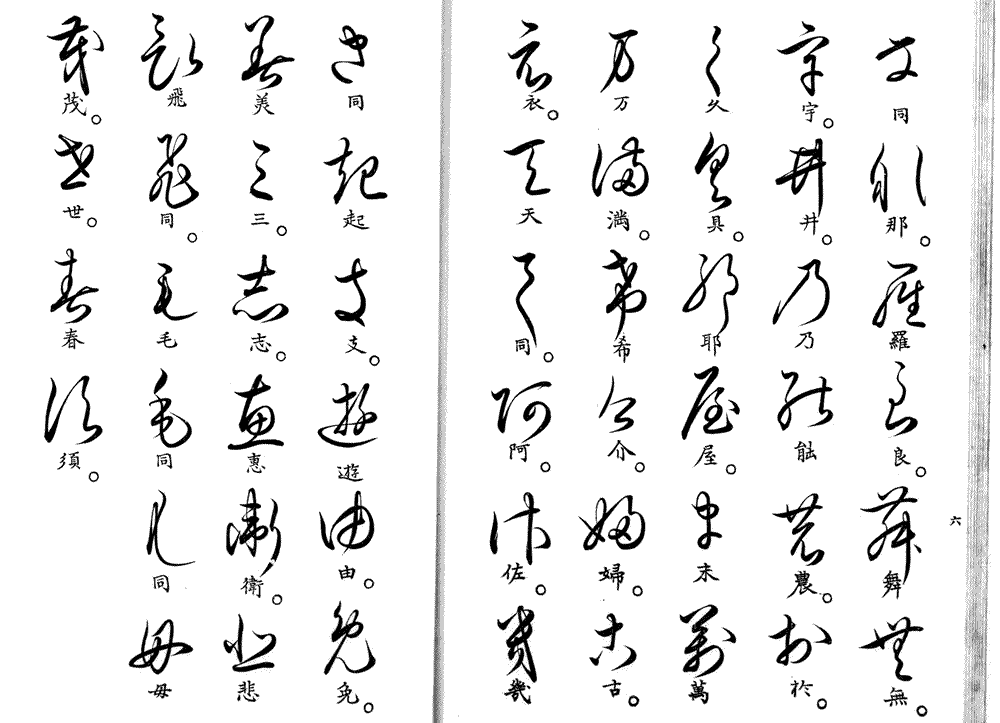 六
同 那。 羅 良。 舞 無。
宇。 井。 乃 能 農。 於。
久 具。 耶 屋。 末 萬
万 満。 希 介。 婦。 古。
衣。 天 同。 阿。 佐。 幾
同 起 支。 遊 由。 免。
美 三。 志。 惠 衛。 悲
飛 同。 毛 同 同 母
茂。 世。 春 須。